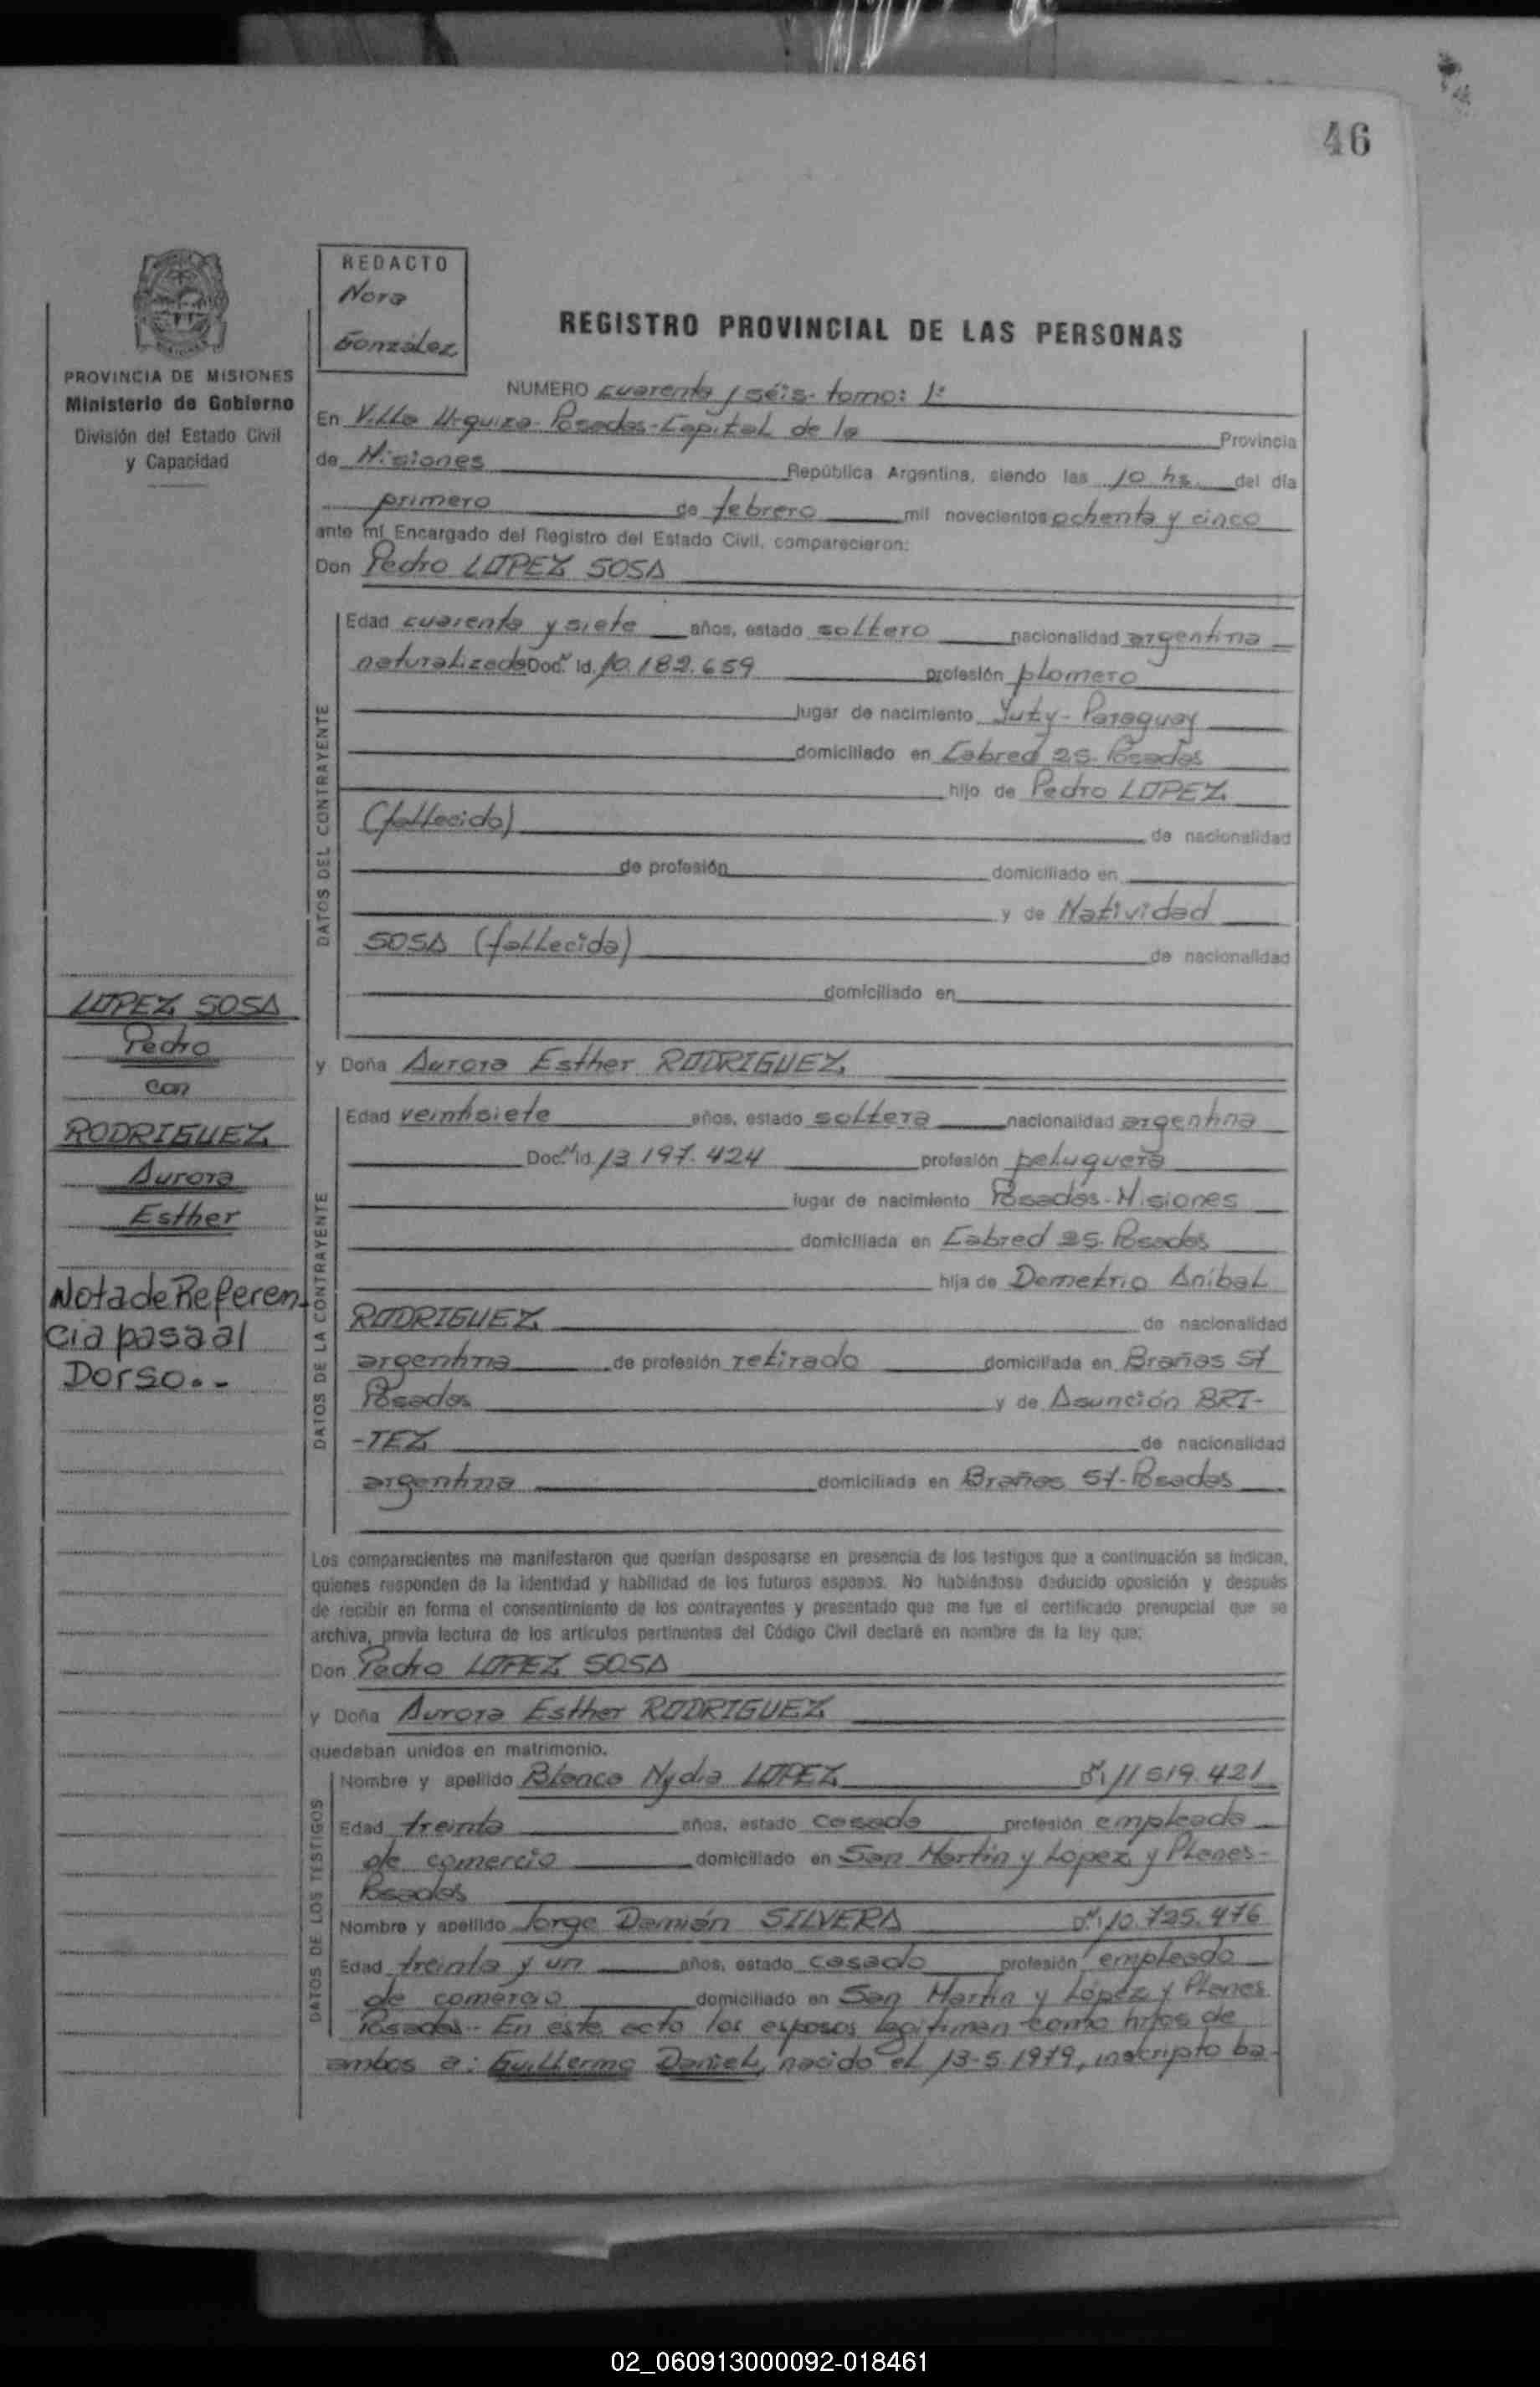 46
REDACTO
Nora
González
PROVINCIA DE MISIONES
Ministerio de Gobierno
División del Estado Civil
y Capacidad
REGISTRO PROVINCIAL DE LAS PERSONAS
NUMERO cuarenta y séis- tomo: 1º
En Villa Urquiza- Posadas- Capital de la Provincia
de Misiones República Argentina, siendo las 10 hs. del día
primero de febrero mil novecientos ochenta y cinco
ante mí Encargado del Registro del Estado Civil, comparecieron:
Don Pedro LOPEZ SOSA
DATOS DEL CONTRAYENTE
Edad cuarenta y siete años, estado soltero nacionalidad argentina
naturalizado Doc. Id. 10.182.659 profesión plomero
lugar de nacimiento Yuty- Paraguay
domiciliado en Cabred 25- Posadas
hijo de Pedro LOPEZ
(fallecido) de nacionalidad
de profesión domiciliado en
y de Natividad
SOSA (fallecida) de nacionalidad
domiciliado en
LOPEZ SOSA
Pedro
con
RODRIGUEZ
Aurora
Esther
Nota de Referen
cia pasa al
Dorso.-
y Doña Aurora Esther RODRIGUEZ
DATOS DE LA CONTRAYENTE
Edad veintisiete años, estado soltera nacionalidad argentina
Doc. Id. 13.197.424 profesión peluquera
lugar de nacimiento Posadas- Misiones
domiciliada en Cabred 25- Posadas
hija de Demetrio Aníbal
RODRIGUEZ de nacionalidad
argentina de profesión retirado domiciliada en Brañas 57
Posadas y de Asunción BRI-
-TEZ de nacionalidad
argentina domiciliada en Brañas 57- Posadas
Los comparecientes me manifestaron que querían desposarse en presencia de los testigos que a continuación se indican,
quienes responden de la identidad y habilidad de los futuros esposos. No habiéndose deducido oposición y después
de recibir en forma el consentimiento de los contrayentes y presentado que me fue el certificado prenupcial que se
archiva, previa lectura de los artículos pertinentes del Código Civil declaré en nombre de la ley que:
Don Pedro LOPEZ SOSA
y Doña Aurora Esther RODRIGUEZ
quedaban unidos en matrimonio.
DATOS DE LOS TESTIGOS
Nombre y apellido Blanca Nydia LOPEZ 11.519.421
Edad treinta años, estado casada profesión empleada
de comercio domiciliado en San Martín y Lopez y Planes-
Posadas
Nombre y apellido Jorge Damián SILVERA 10.725.476
Edad treinta y un años, estado casado profesión empleado
de comercio domiciliado en San Martín y López y Planes
Posadas- En este acto los esposos legitiman como hijos de
ambos a: Guillermo Daniel, nacido el 13-5-1979, inscripto ba-
02_060913000092-018461